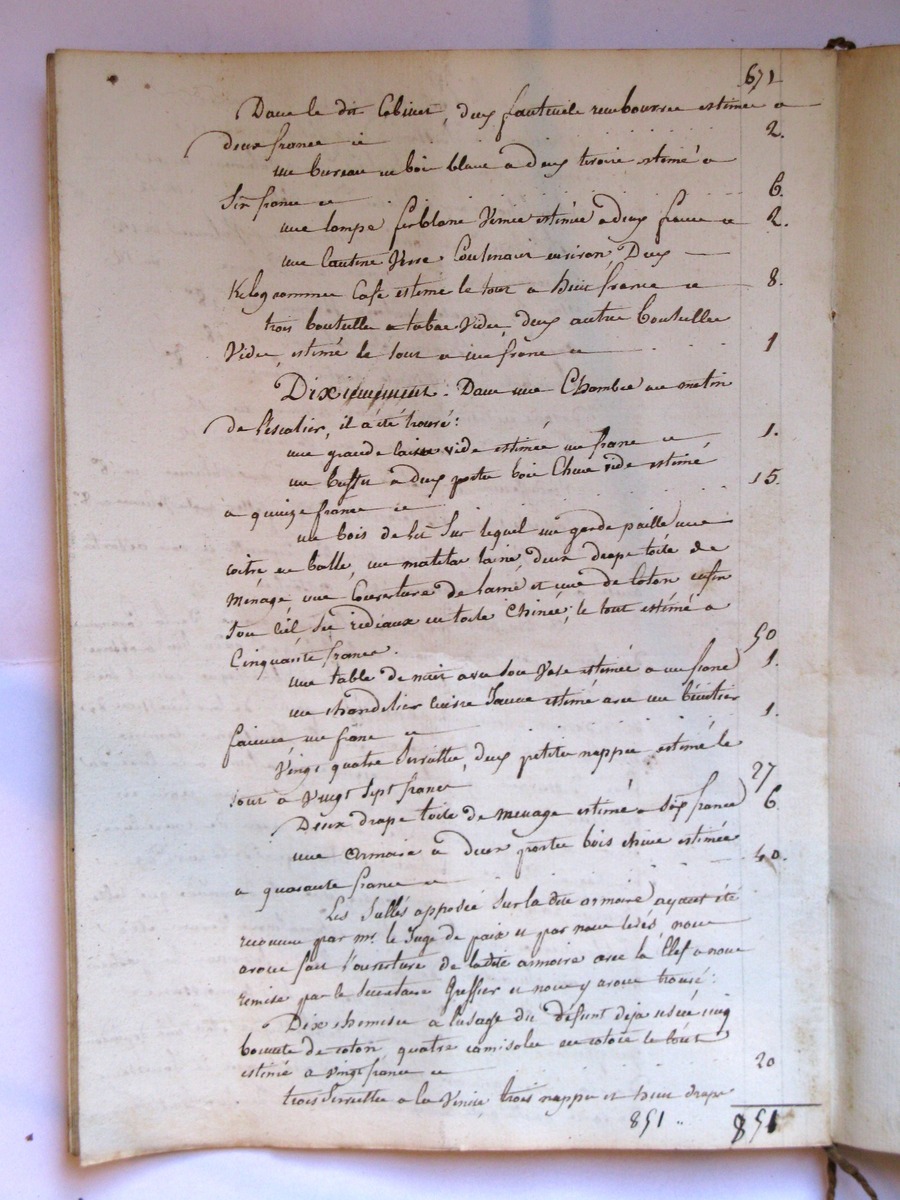 671
Dans le dit Cabinet, deux fauteuils rembourrés estimés a
deux francs ci 2.
un bureau en bois blanc a deux tiroirs estimé a
Six francs ci 6.
une lampe ferblanc Vernie estimée a deux francs ci 2.
une Cantine Verre Contenant environ Deux
Kilogrammes Café estimé le tout a huit francs ci 8.
trois bouteilles a tabac vides, deux autres bouteilles
Vides, estimé le tout a un franc ci 1
Dixiemement. Dans une Chambre au matin
de l'escalier, il a été trouvé:
une grande caisse vide estimée un franc ci 1.
un buffet a deux portes bois Chene vide estimé
a quinze francs ci 15.
un bois de lit Sur lequel une garde paille une
coitre en balle, un matelas laine, deux draps toile de
ménage une Couverture de laine et une de Coton enfin
Son Ciel Ses rideaux en toile Chinée; le tout estimé a
Cinquante francs. 50
une table de nuit avec son Vase estimée a un franc 1.
un chandelier cuivre Jaune estimé avec un bénitier
faience un franc ci 1.
Vingt quatre Serviettes, deux petites nappes estimé le
tout a Vingt Sept francs 27
Deux draps toile de menage estimé a Six francs 6
une armoire a deux portes bois chene estimée
a quarante francs ci 40.
Les Sellés apposés Sur la dite armoire ayant été
reconnus par mr. le Juge de paix et par nous levés, nous
avons fait l'ouverture de la dite armoire avec la Clef a nous
remise par le Secretaire Greffier et nous y avons trouvé:
Dix chemises a l'usage du défunt deja usées cinq
bonnets de coton, quatre camisoles en coton le tout
estimé a vingt francs ci 20
trois Serviettes a la Venise trois nappes et huit draps
851 .. 851